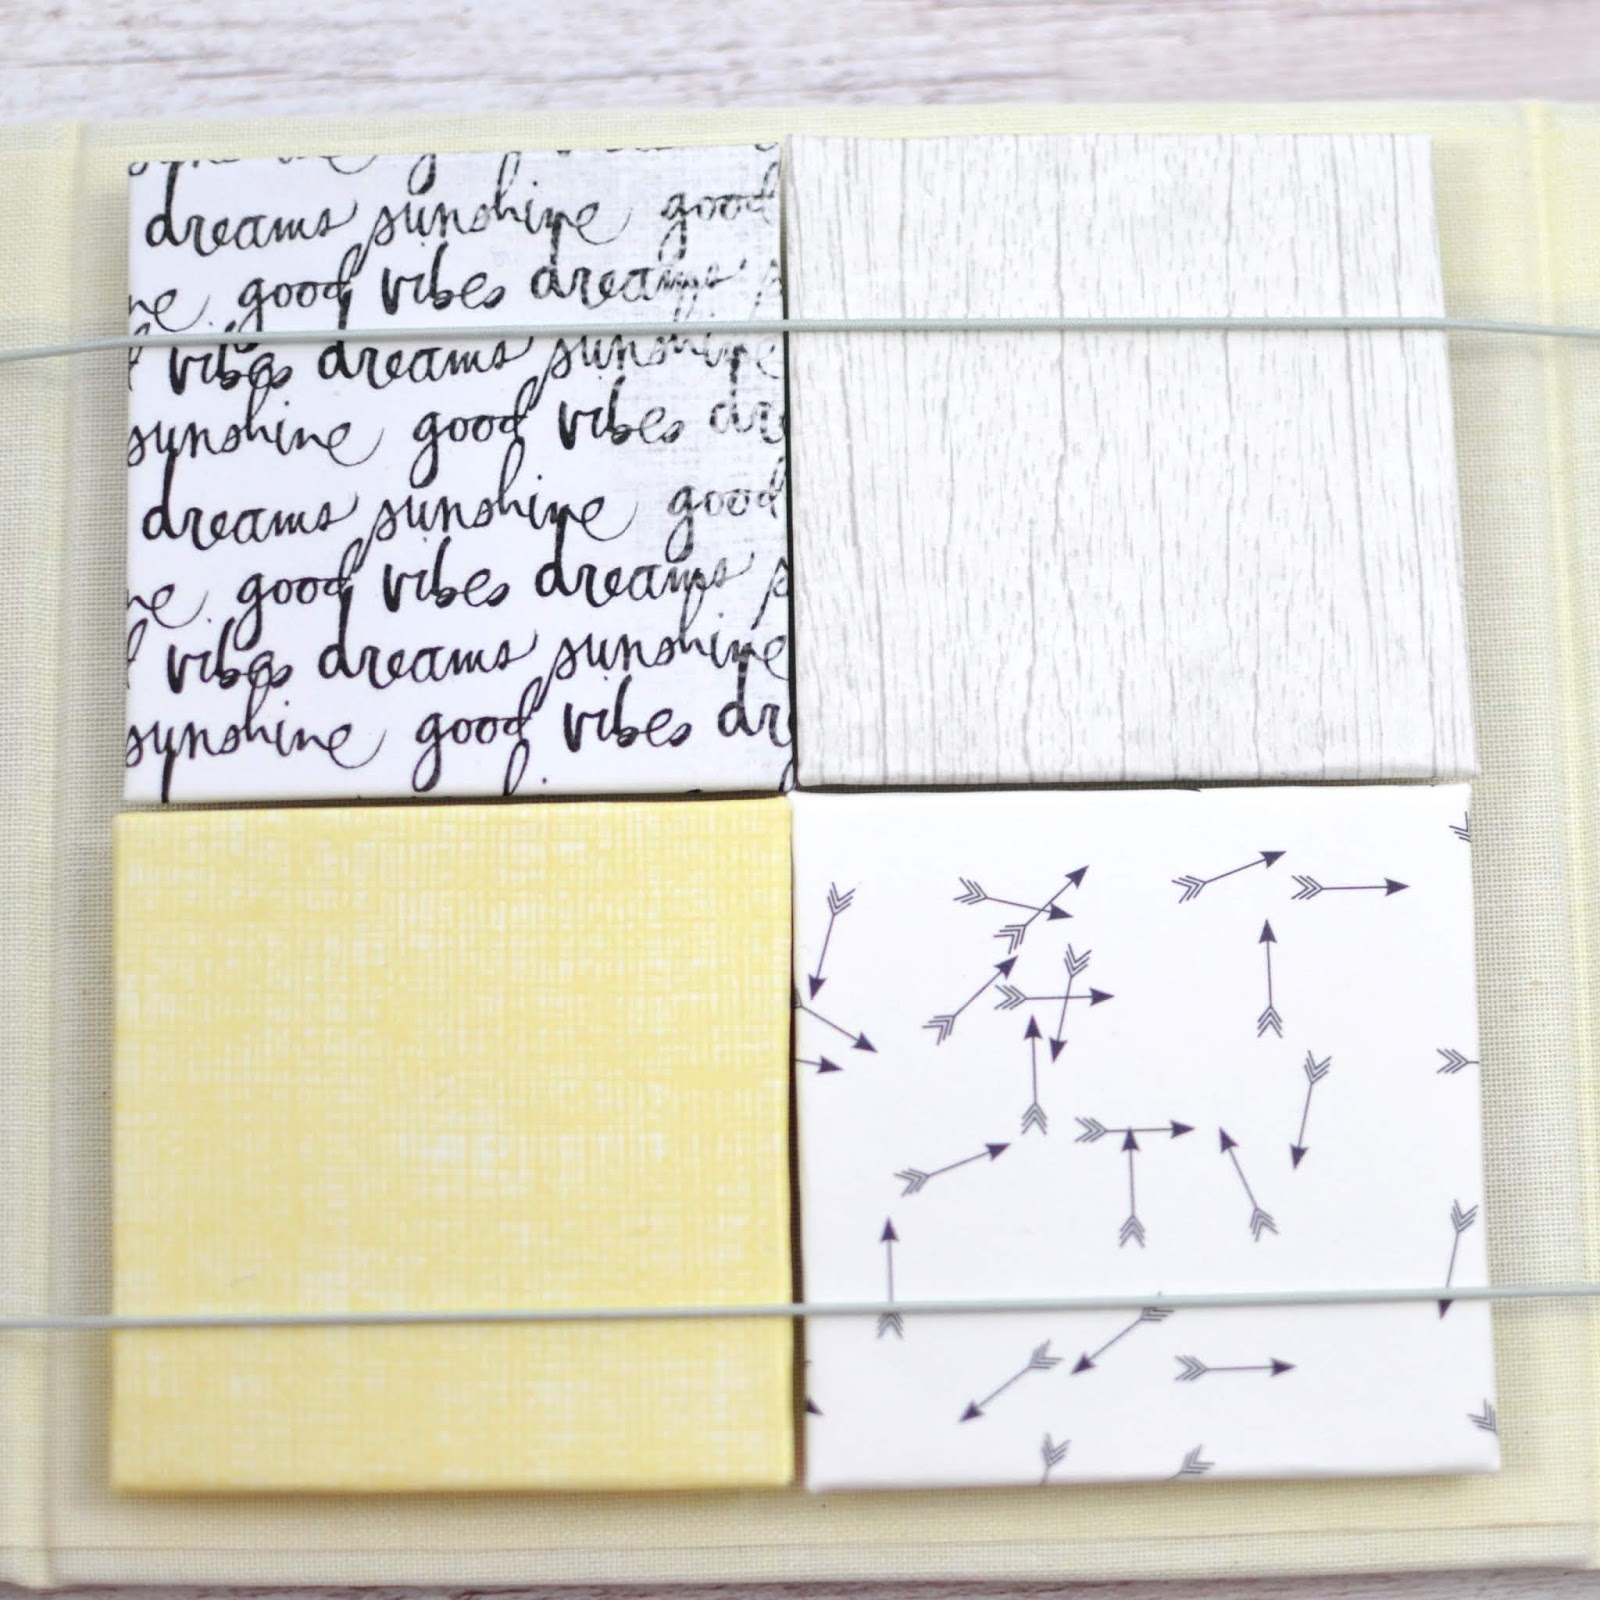 dreams sunshine good
good vibes dreams
vibes dreams sunshine
sunshine good vibes
dreams sunshine good
good vibes dreams
vibes dreams sunshine
sunshine good vibes